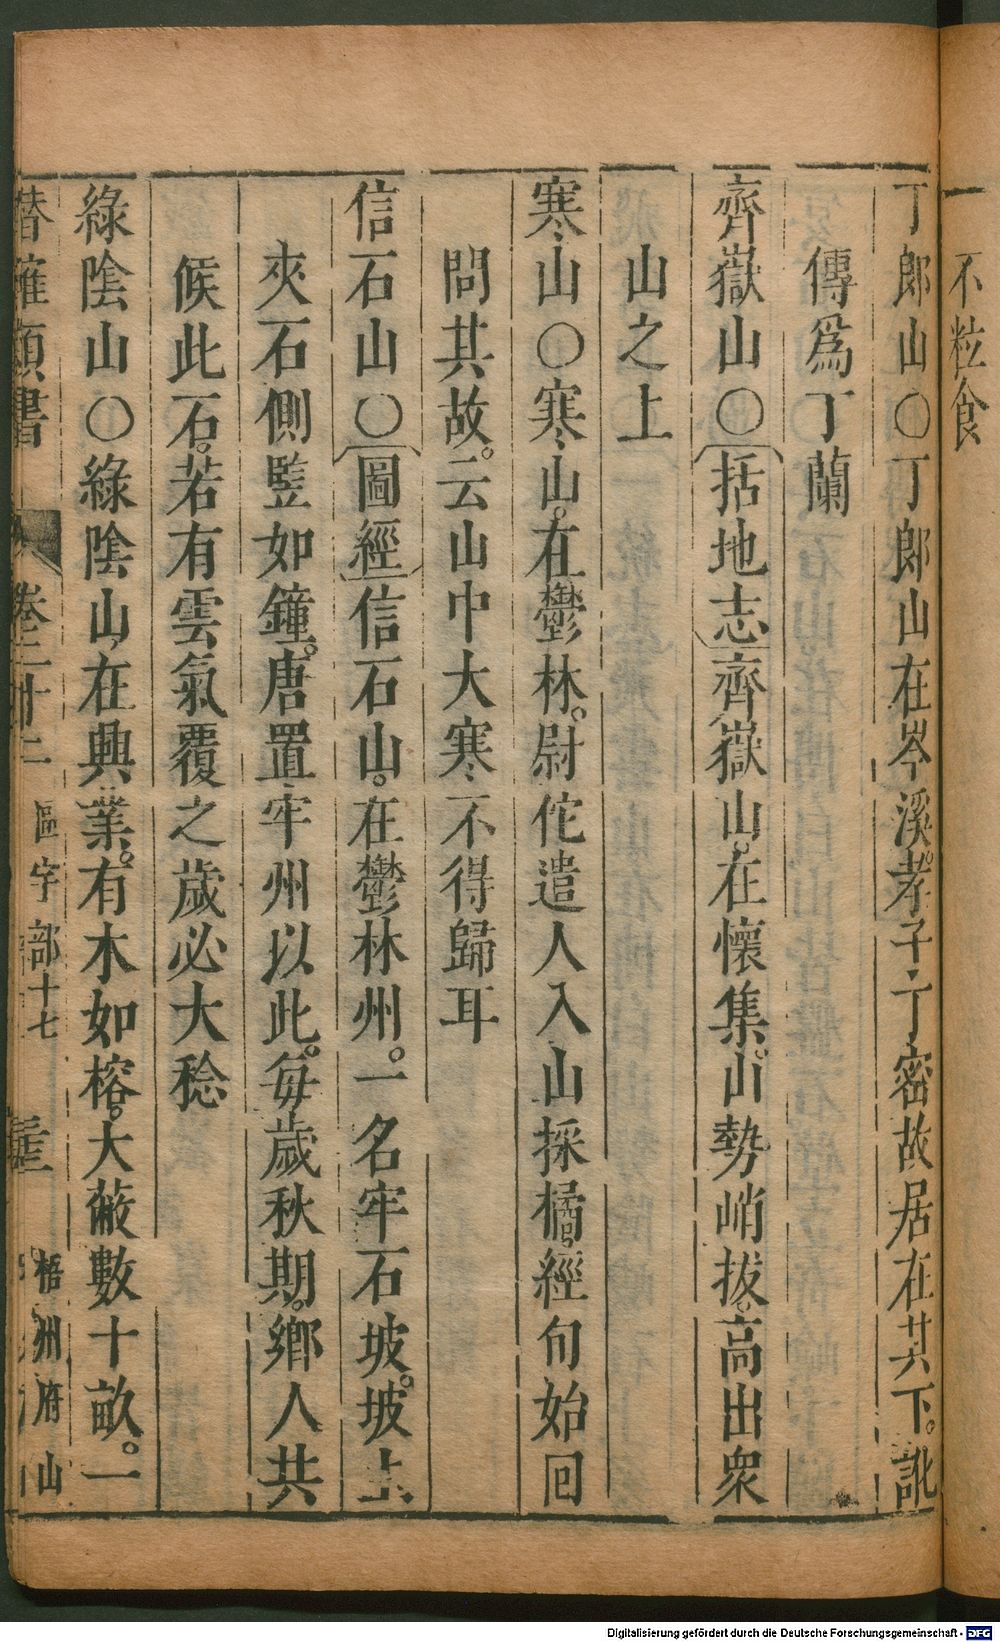 不粒食
丁郎山〇丁郎山在岑溪。孝子丁密故居在其下。訛
傳爲丁蘭
齊嶽山〇括地志齊嶽山。在懷集。山勢峭拔。高出衆
山之上
寒山〇寒山。在鬱林。尉佗遣人入山採橘。經旬始回
問其故。云山中大寒不得歸耳
信石山〇圖經信石山。在鬱林州。一名牢石坡。坡上
夾石側竪如鐘。唐置牢州以此。每歲秋期。鄉人共
候此石。若有雲氣覆之歲必大稔
綠陰山〇綠陰山。在興業。有木如榕。大蔽數十畝。一
潛確類書 卷二十二 區宇部十七 梧州府山
Digitalisierung gefördert durch die Deutsche Forschungsgemeinschaft - DFG